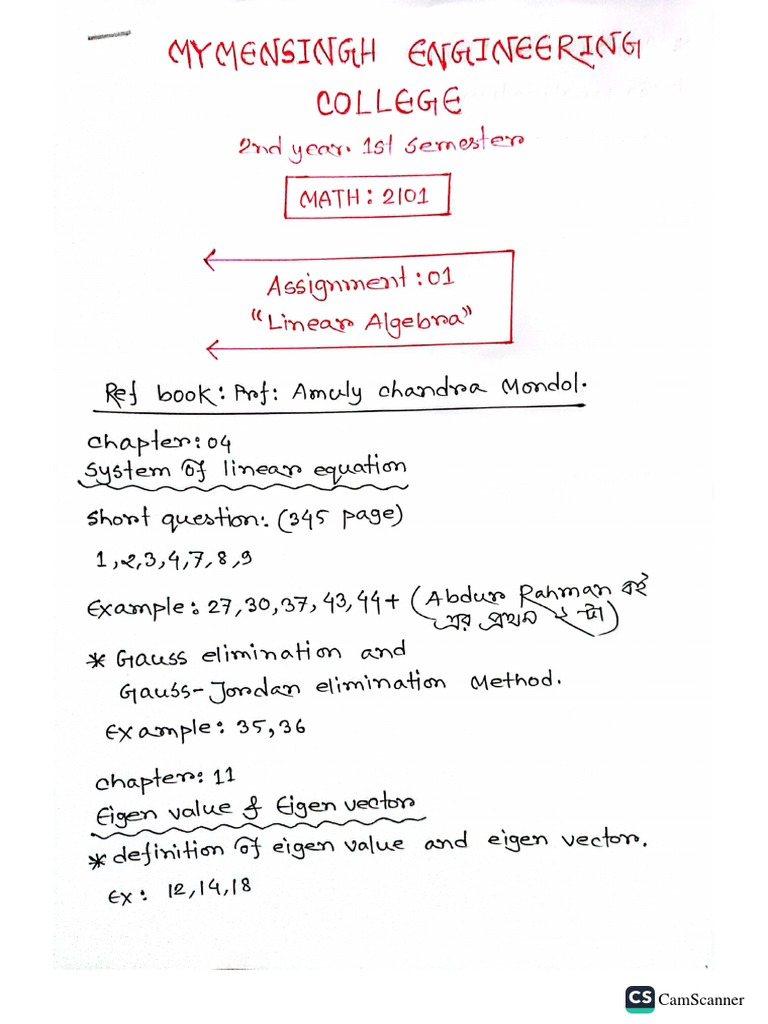 MYMENSINGH ENGINEERING
COLLEGE
2nd year. 1st semester
MATH: 2101
Assignment: 01
"Linear Algebra"
Ref book: Prf: Amuly chandra Mondol.
chapter: 04
System of linear equation
short question: (345 page)
1, 2, 3, 4, 7, 8, 9
Example: 27, 30, 37, 43, 44 + (Abdur Rahman বই
এর প্রথম ২ টা)
* Gauss elimination and
Gauss-Jordan elimination Method.
Example: 35, 36
chapter: 11
Eigen value & Eigen vector
* definition of eigen value and eigen vector.
Ex: 12, 14, 18
CS CamScanner